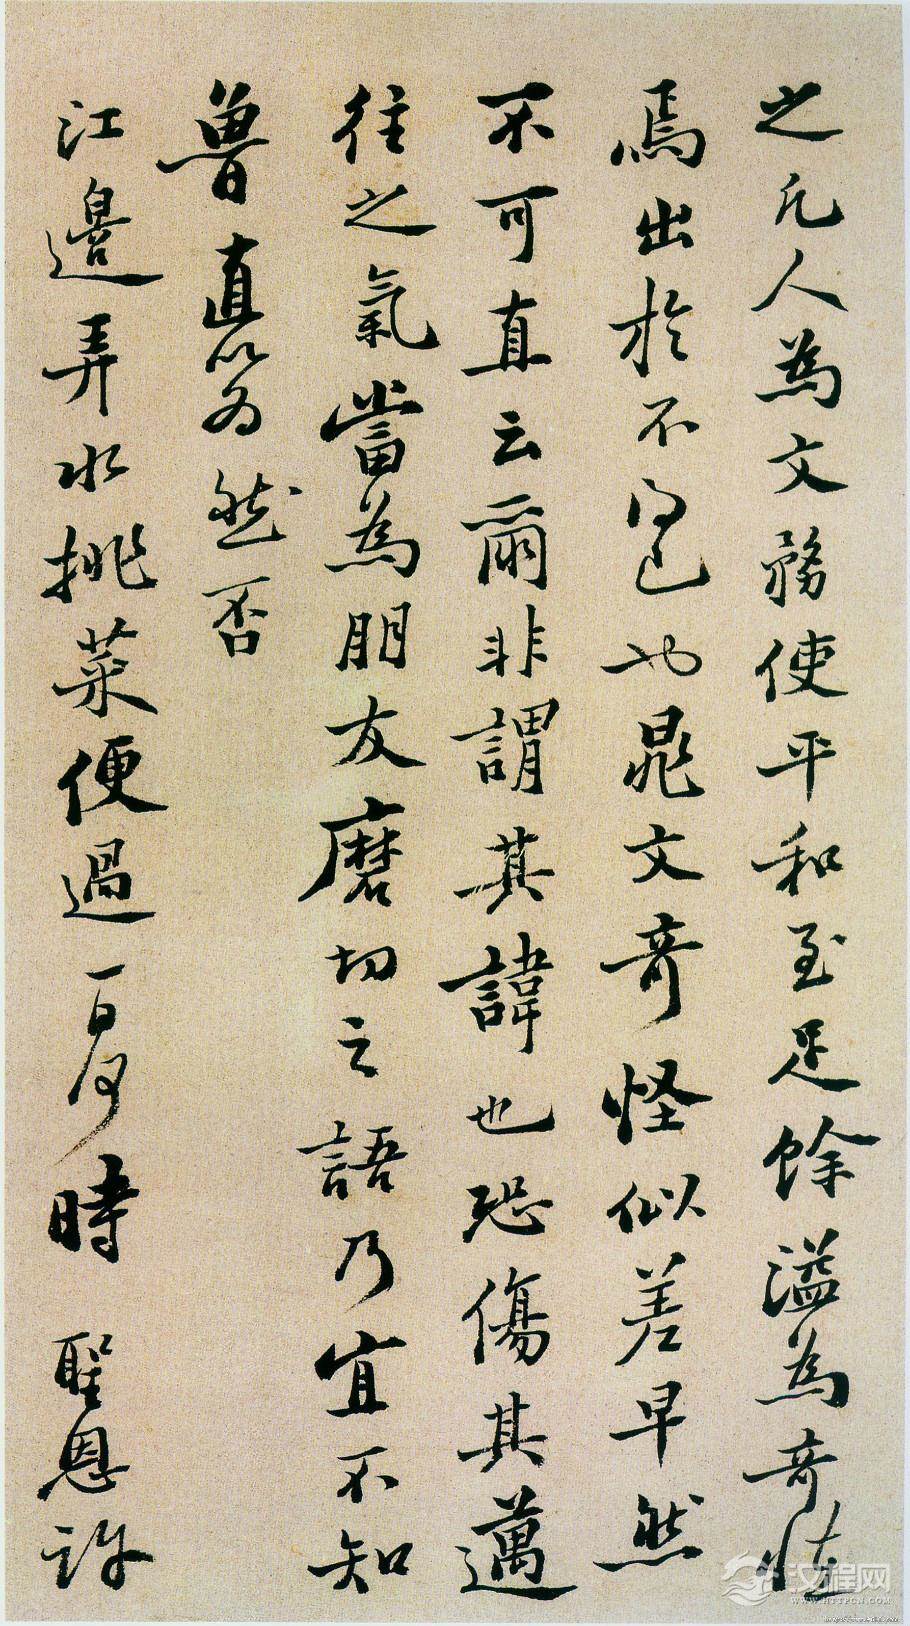 之凡人為文務使平和至足餘溢為奇怪
焉出於不得已也晁文奇怪似差早然
不可直云爾非謂其諱也恐傷其邁
往之氣當為朋友磨切之語乃宜不知
魯直以為然否
江邊弄水挑菜便過一日何時聖恩許
汉程网
WWW.HTTPCN.COM